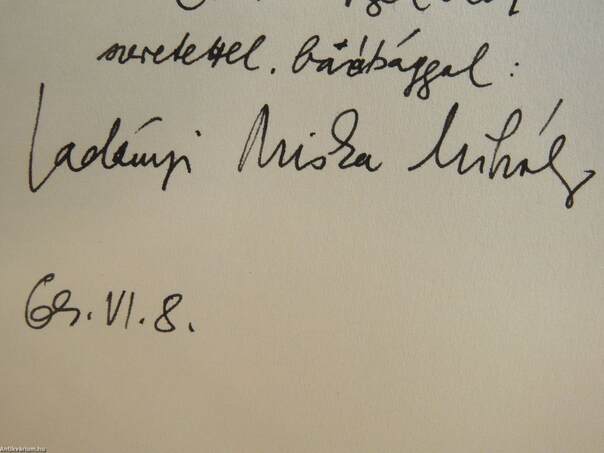 szeretettel. barátsággal:
Ladányi Miska Mihály
69. VI. 8.
Antikvarium.hu